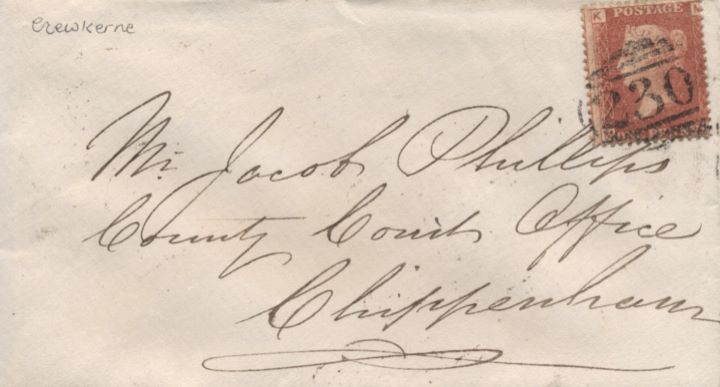 crewkerne
K
POSTAGE
230
Mr. Jacob Phillips
County Court Office
Chippenham